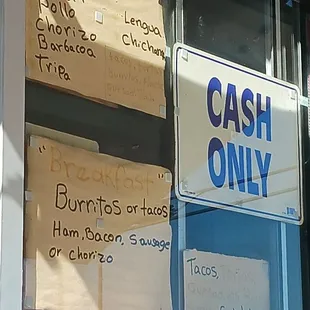 Pollo
Chorizo
Barbacoa
Tripa
Lengua
Chicharr
CASH
ONLY
Breakfast
Burritos or tacos
Ham, Bacon, Sausage
or chorizo
Tacos,